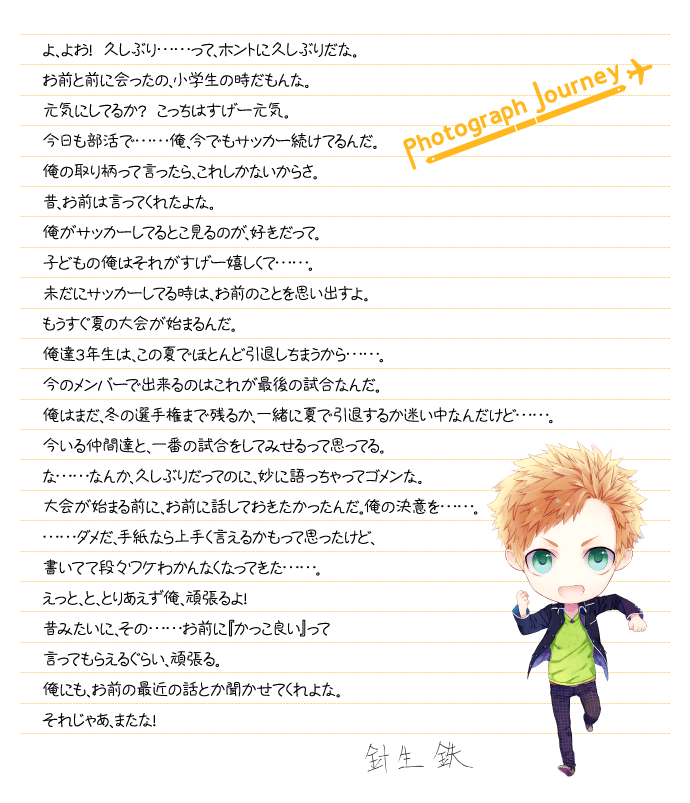 よ、よお!　久しぶり……って、ホントに久しぶりだな。
お前と前に会ったの、小学生の時だもんな。
元気にしてるか?　こっちはすげー元気。
今日も部活で……俺、今でもサッカー続けてるんだ。
俺の取り柄って言ったら、これしかないからさ。
昔、お前は言ってくれたよな。
俺がサッカーしてるとこ見るのが、好きだって。
子どもの俺はそれがすげー嬉しくて……。
未だにサッカーしてる時は、お前のことを思い出すよ。
もうすぐ夏の大会が始まるんだ。
俺達3年生は、この夏でほとんど引退しちまうから……。
今のメンバーで出来るのはこれが最後の試合なんだ。
俺はまだ、冬の選手権まで残るか、一緒に夏で引退するか迷い中なんだけど……。
今いる仲間達と、一番の試合をしてみせるって思ってる。
な……なんか、久しぶりだってのに、妙に語っちゃってゴメンな。
大会が始まる前に、お前に話しておきたかったんだ。俺の決意を……。
……ダメだ、手紙なら上手く言えるかもって思ったけど、
書いてて段々ワケわかんなくなってきた……。
えっと、と、とりあえず俺、頑張るよ!
昔みたいに、その……お前に『かっこ良い』って
言ってもらえるぐらい、頑張る。
俺にも、お前の最近の話とか聞かせてくれよな。
それじゃあ、またな!
針生 鉄
Photograph Journey